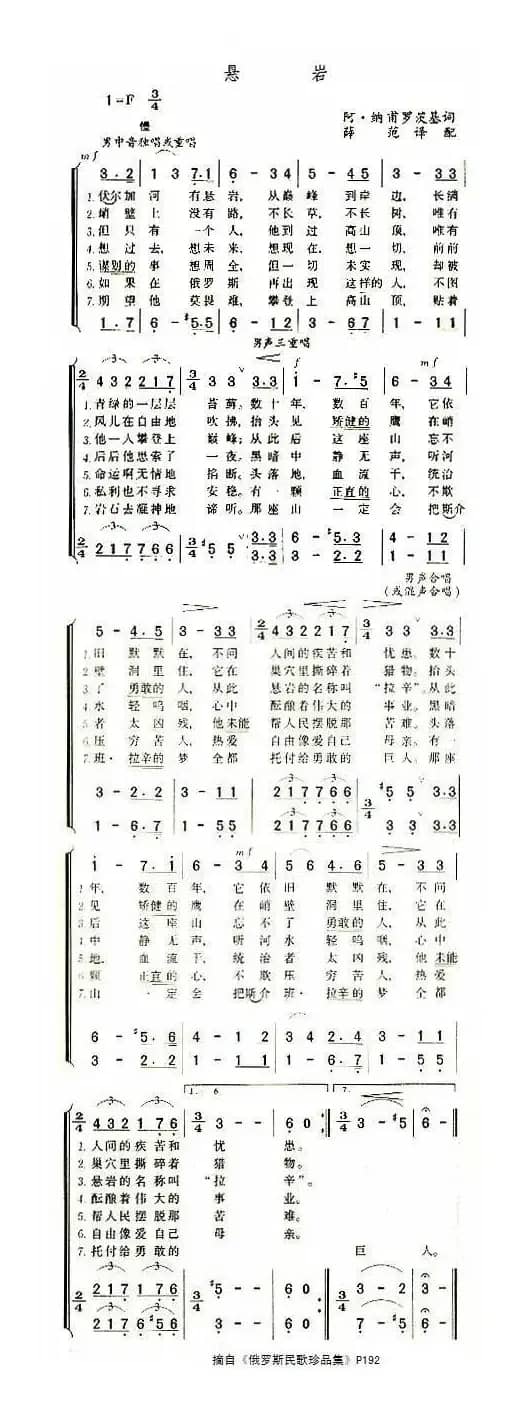 悬 岩
1=F 3/4
慢
男中音独唱或重唱
阿·纳甫罗茨基词
薛 范译 配
mf
3·2 1 3 7·1 6 - 34 5 - 45 3 - 33
1.伏尔加河 有悬岩，从巅峰 到岸 边，长满
2.峭壁上 没有路，不长草，不长 树，唯有
3.但只有 一个人，他到过 高山 顶，唯有
4.想过去，想未来，想现在，想一 切，前前
5.谋划的事 想周全，但一切 未实 现，却被
6.如果在 俄罗斯 再出现 这样的 人，不图
7.期望他 莫畏难，攀登上 高山 顶，贴着
1·7 6 #5·5 6 - 12 3 - 67 1 - 11
男声三重唱
f mf
2/4 432217 3/4 3 3 3·3 1 - 7·#5 6 - 34
1.青绿的一层层 苔藓。数十年，数百 年，它依
2.风儿在自由地 吹拂，抬头见 矫健的 鹰 在峭
3.他一人攀登上 巅峰；从此后 这座 山 忘不
4.后后他思索了 一夜。黑暗中 静无 声，听河
5.命运啊无情地 掐断。头落地，血流 干，统治
6.私利也不寻求 安稳。有一颗 正直的 心，不欺
7.岩石去凝神地 谛听。那座山 一定 会 把斯介
2/4 217766 3/4 #5 5 3·3 6 - #5·3 4 - 12
3·3 3 - 2·2 1 - 11
男声合唱
(或混声合唱)
5 - 4·5 3 - 33 2/4 432217 3/4 3 3 3·3
1.旧 默默 在，不问 人间的疾苦和 忧患。数十
2.壁 洞里 住，它在 巢穴里撕碎着 猎物。抬头
3.了 勇敢的 人，从此 悬岩的名称叫 “拉辛”。从此
4.水 轻呜 咽，心中 酝酿着伟大的 事业。黑暗
5.者 太凶 残，他未能 帮人民摆脱那 苦难。头落
6.压 穷苦 人，热爱 自由像爱自己 母亲。有一
7.班·拉辛的 梦 全都 托付给勇敢的 巨人。那座
3 - 2·2 3 - 11 217766 3/4 #5 5 3·3
1 - 6·7 1 - 55 217766 5 5 3·3
mf
1 - 7·1 6 - 3 4 5 6 4·5 5 - 33
1.年，数百 年，它 依 旧 默默 在，不问
2.见 矫健的 鹰 在 峭 壁 洞里 住，它在
3.后 这座 山 忘 不 了 勇敢的 人，从此
4.中 静无 声，听 河 水 轻呜 咽，心中
5.地，血流 干，统 治 者 太凶 残，他未能
6.颗 正直的 心，不 欺 压 穷苦 人，热爱
7.山 一定 会 把斯介 班·拉辛的 梦 全都
6 - #5·6 4 - 1 2 3 4 2·4 3 - 11
3 - 2·2 1 - 11 1 - 6·7 1 - 55
1. 6. 7.
2/4 432176 3/4 3 - - 6 0 3 - #5 6 - -
1.人间的疾苦和 忧 患。
2.巢穴里撕碎着 猎 物。
3.悬岩的名称叫 “拉 辛”。
4.酝酿着伟大的 事 业。
5.帮人民摆脱那 苦 难。
6.自由像爱自己 母 亲。
7.托付给勇敢的 巨 人。
2/4 217176 3/4 #5 - - 6 0 3 - 2 3 - -
217176 5 - - 6 0 3 - #5 6 - -
摘自《俄罗斯民歌珍品集》P192